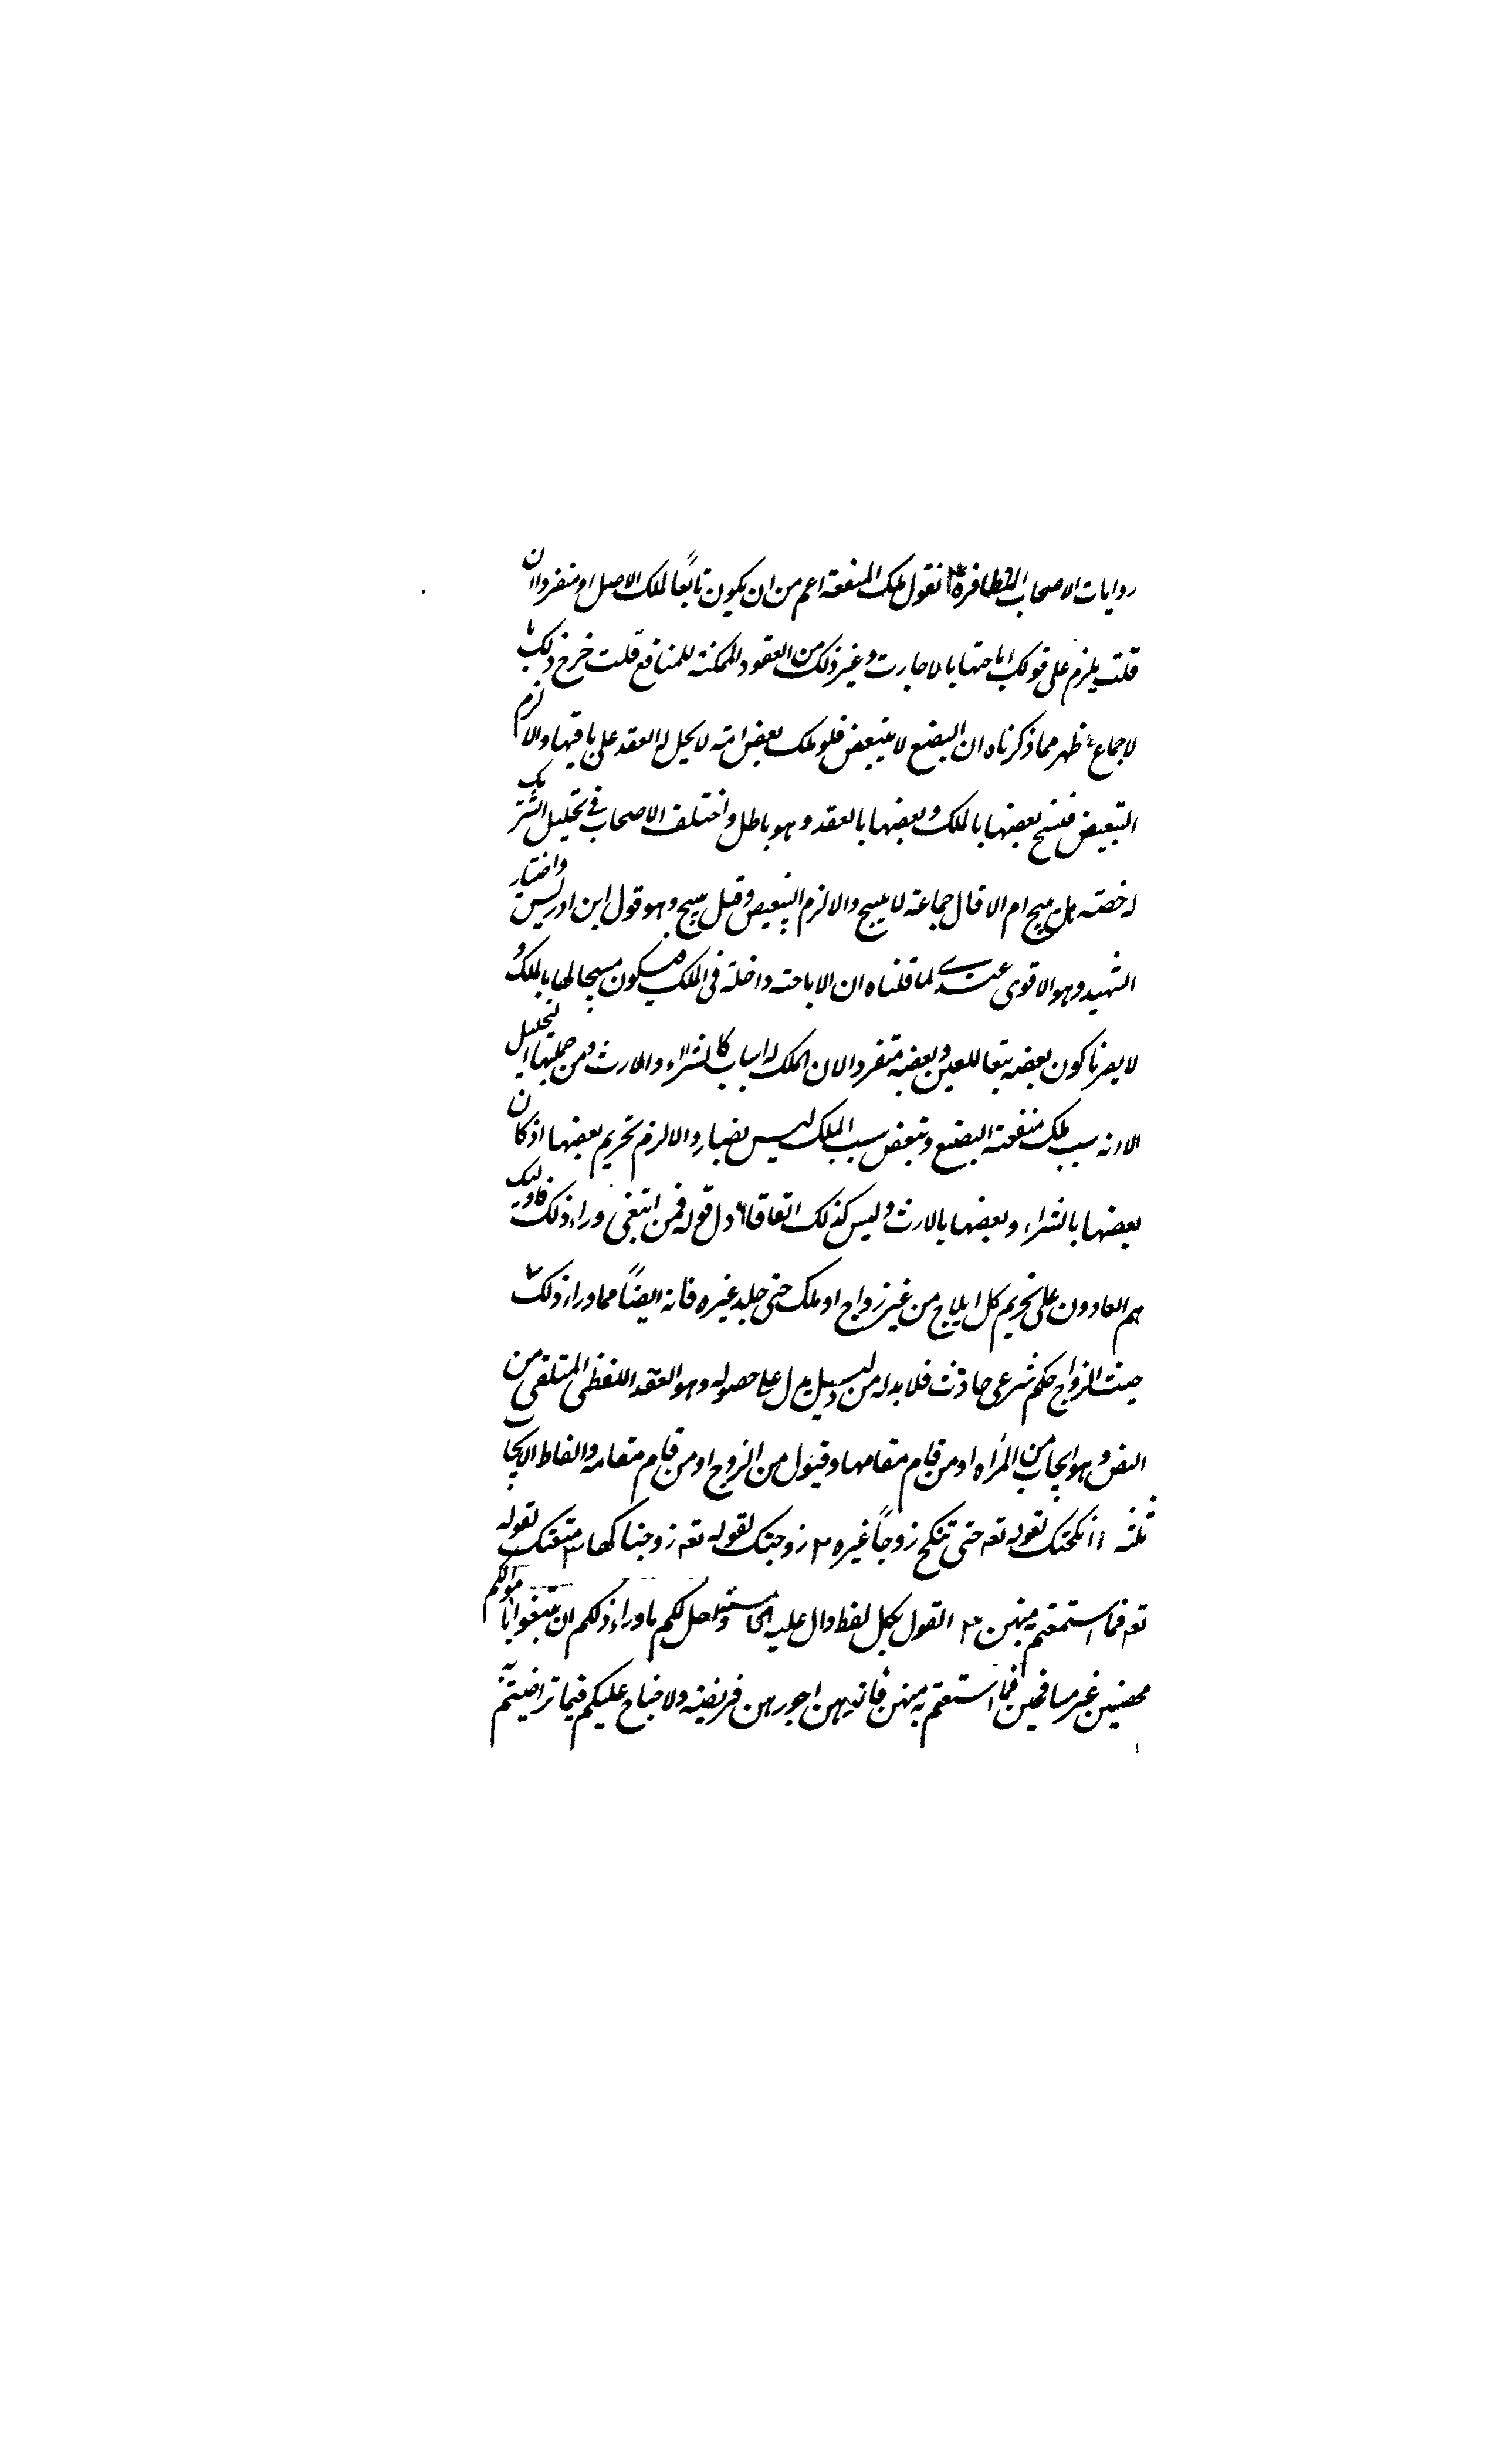 روايات الاصحاب المتظافرة نقول ملك المنفعة اعم من ان يكون تابعًا لملك الاصل او منفردا ان
قلت يلزم على قولك اباحتها بالاجارة وغير ذلك من العقود المملكة للمنافع قلت خرج ذلك با
لاجماع ظهر مما ذكرناه ان البضع لا يتبعض فلو ملك بعض امته لا يحل له العقد على باقيها والا لزم
التبعيض بعضها بالملك وبعضها بالعقد وهو باطل واختلف الاصحاب في تحليل الشريك
له حصته هل يبيح ام لا قال جماعة لا يبيح والا لزم التبعيض وقيل يبيح وهو قول ابن ادريس واختار
الشهيد وهو الاقوى عندى لما قلناه ان الاباحة داخلة فى الملك فيكون مبيحا لها بالملك و
لا يضرنا كون بعضه تبعا للعين وبعضه منفردا لان الملك له اسباب كالشراء والارث ومن جملتها التحليل
لانه سبب ملك منفعة البضع وتبعض سبب الملك ليس بضار والا لزم تحريم بعضها اذ كان
بعضها بالشراء وبعضها بالارث وليس كذلك اتفاقا ٦ دل قوله فمن ابتغى وراء ذلك فاولئك
هم العادون على تحريم كل ايلاج من غير زواج او ملك حتى جلد غيره فانه ايضًا مما وراء ذلك ٧
حيث الزواج حكم شرعى حادث فلا بد له من دليل يدل على حصوله وهو العقد اللفظى المتلقى من
النص وهو ايجاب من المرأه او من قام مقامها وقبول من الزوج او من قام مقامه والفاظ الايجاب
ثلثة ١ انكحتك لقوله تعه حتى تنكح زوجًا غيره ٢ زوجتك لقوله تعه زوجناكها ٣ متعتك لقوله
تعه فما استمتعتم منهن القول بكل لفظ دال عليه واحل لكم ما وراء ذلكم ان تبتغوا باموالكم
محصنين غير مسافحين فما استمتعتم به منهن فاتيهن اجورهن فريضة ولا جناح عليكم فيما تراضيتم